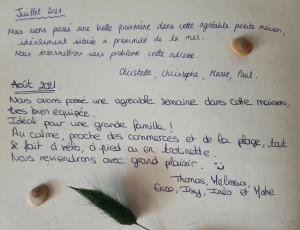 Juillet 2021
Nous avons passé une belle quinzaine dans cette agréable petite maison,
idéalement située à proximité de la mer.
Nous transmettrons sans problème cette adresse.
Christelle, Christophe, Marie, Paul.
Août 2021.
Nous avons passé une agréable semaine dans cette maison,
très bien équipée.
Idéal pour une grande famille !
Au calme, proche des commerces et de la plage, tout
se fait à vélo, à pied ou en trottinette.
Nous reviendrons avec grand plaisir.
Thomas, Mélissa,
Enzo, Inès et